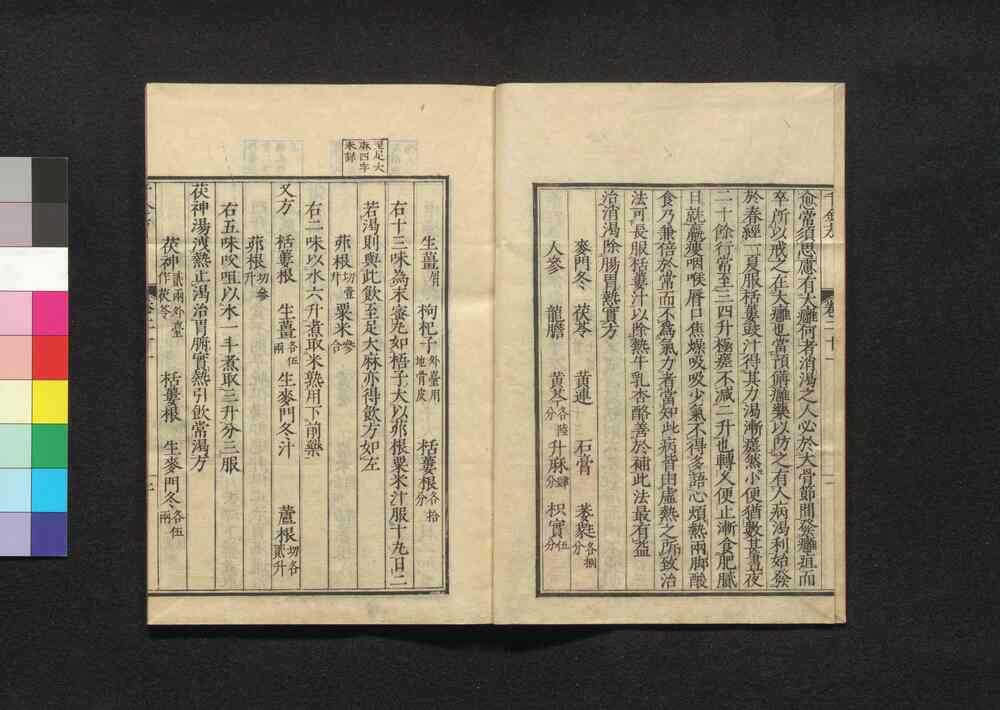 千金方 卷二十一
愈常須思慮有大癰何者消渴之人必於大骨節間發癰疽而
卒所以戒之在大癰也當預備癰藥以防之有人病渴利始發
於春經一夏服栝蔞豉汁得其力渴漸瘥然小便猶數甚晝夜
二十餘行常至三四升極瘥不减二升也轉久便止漸食肥膩
日就羸瘦咽喉脣口焦燥吸吸少氣不得多語心煩熱兩脚酸
食乃兼倍於常而不爲氣力者當知此病皆由虛熱之所致治
法可長服栝蔞汁以除熱牛乳杏酪善於補此法最有益
治消渴除腸胃熱實方
麥門冬 茯苓 黄連 石膏 葳蕤各捌分
人參 龍膽 黄芩各陸分 升麻肆分 枳實伍分
生薑屑 枸杞子外臺用地骨皮 栝蔞根各拾分
右十三味為末蜜丸如梧子大以茆根粟米汁服十丸日二
若渴則與此飲至足大麻亦得飲方如左
至足大麻四字未詳
茆根切壹升 粟米參合
右二味以水六升煮取米熟用下前藥
又方 栝蔞根 生薑各伍兩 生麥門冬汁 蘆根切各貳升
茆根切參升
右五味㕮咀以水一斗煮取三升分三服
茯神湯洩熱止渴治胃腑實熱引飲常渴方
茯神貳兩外臺作茯苓 栝蔞根 生麥門冬各伍兩